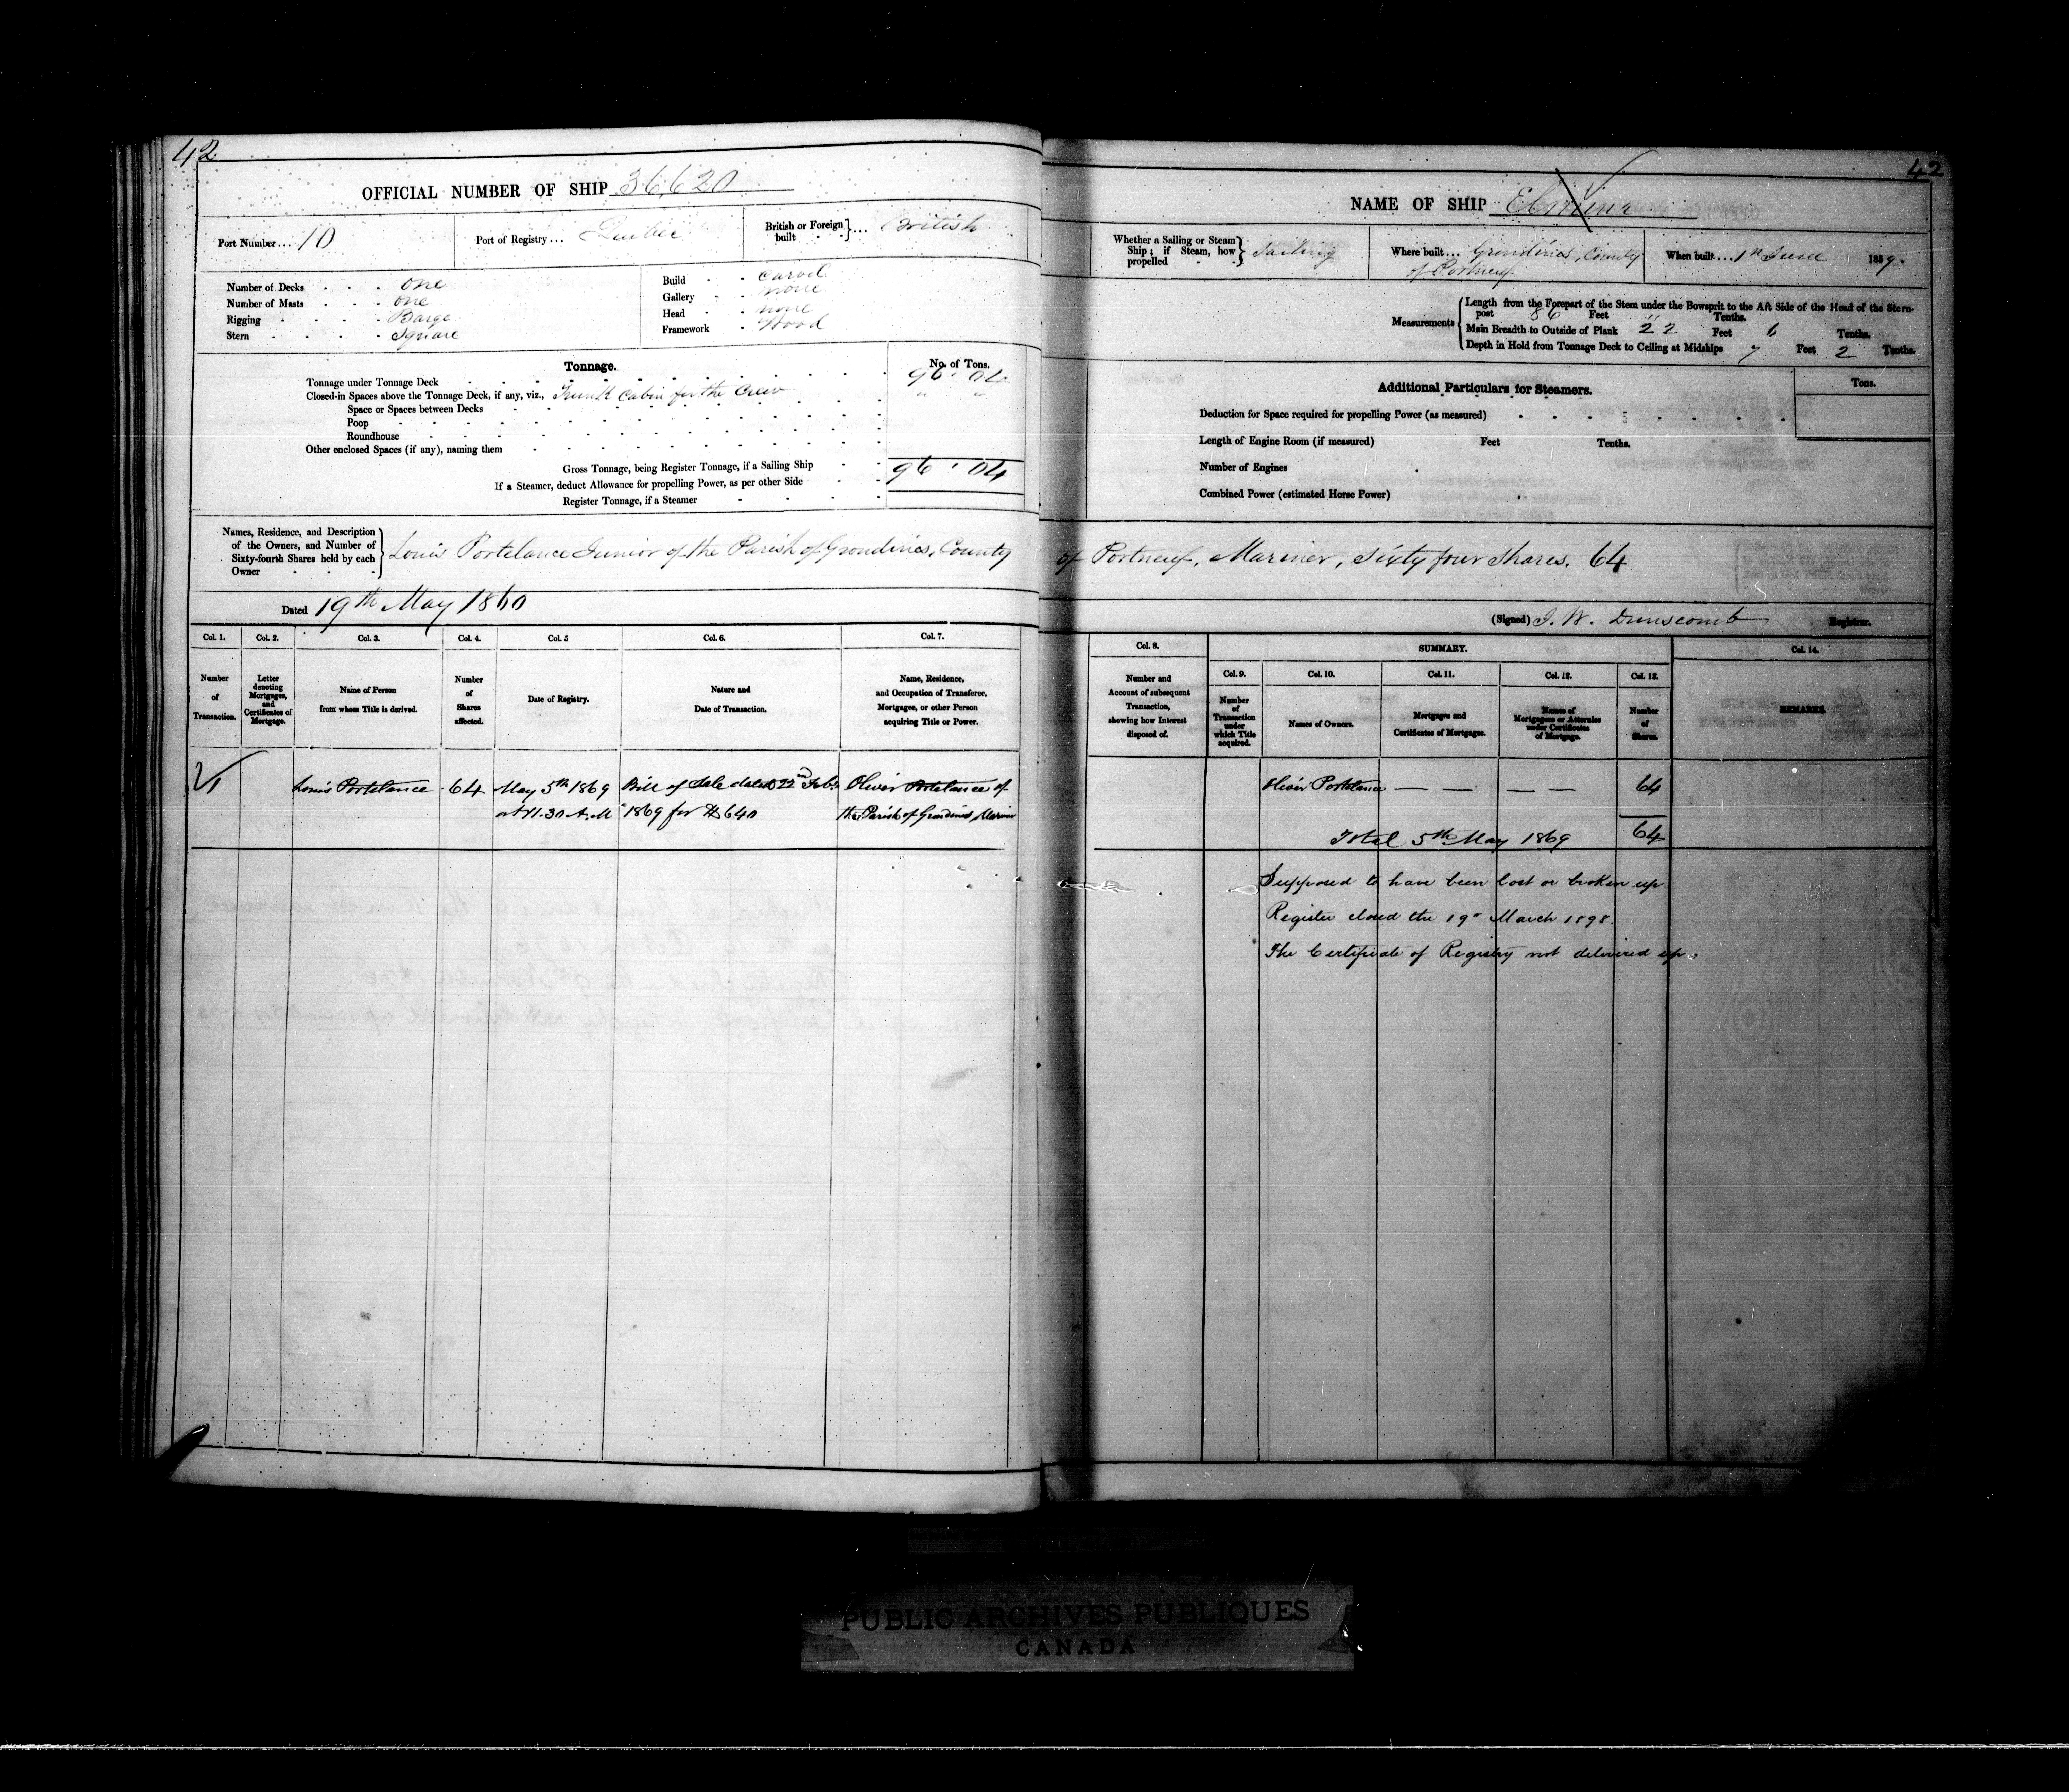 42
OFFICIAL NUMBER OF SHIP 36,620
Port Number... 10
Port of Registry... Quebec
British or Foreign built } ... British
Number of Decks . . . one
Number of Masts . . . one
Rigging . . . Barge
Stern . . . . Square
Build . . Carvel
Gallery . . none
Head . . none
Framework . Wood
Tonnage.
No. of Tons.
Tonnage under Tonnage Deck 96 . 04
Closed-in Spaces above the Tonnage Deck, if any, viz., Trunk Cabin for the Crew " "
Space or Spaces between Decks
Poop
Roundhouse
Other enclosed Spaces (if any), naming them
Gross Tonnage, being Register Tonnage, if a Sailing Ship 96 . 04
If a Steamer, deduct Allowance for propelling Power, as per other Side
Register Tonnage, if a Steamer
Names, Residence, and Description
of the Owners, and Number of
Sixty-fourth Shares held by each
Owner
Louis Portelance Junior of the Parish of Grondines, County
Dated 19th May 1860
Col. 1. Col. 2. Col. 3. Col. 4. Col. 5 Col. 6. Col. 7.
Number of Transaction.
Letter denoting Mortgages, and Certificates of Mortgage.
Name of Person from whom Title is derived.
Number of Shares affected.
Date of Registry.
Nature and Date of Transaction.
Name, Residence, and Occupation of Transferee, Mortgagee, or other Person acquiring Title or Power.
1 Louis Portelance 64 May 5th 1869 Bill of Sale dated 22nd Feby Oliver Portelance of
at 11.30 A.M 1869 for $640 the Parish of Grondines, Mariner
42
NAME OF SHIP
Whether a Sailing or Steam Ship; if Steam, how propelled } Sailing
Where built... Grondines, County
of Portneuf
When built... 1st June 1859.
Measurements
Length from the Forepart of the Stem under the Bowsprit to the Aft Side of the Head of the Stern-
post 86 Feet " Tenths.
Main Breadth to Outside of Plank 22 Feet 6 Tenths.
Depth in Hold from Tonnage Deck to Ceiling at Midships 7 Feet 2 Tenths.
Additional Particulars for Steamers.
Tons.
Deduction for Space required for propelling Power (as measured)
Length of Engine Room (if measured) Feet Tenths.
Number of Engines
Combined Power (estimated Horse Power)
of Portneuf, Mariner, Sixty four Shares. 64
(Signed) J. W. Dunscomb Registrar.
Col. 8. SUMMARY. Col. 14.
Col. 9. Col. 10. Col. 11. Col. 12. Col. 13.
Number and Account of subsequent Transaction, showing how Interest disposed of.
Number of Transaction under which Title acquired.
Names of Owners.
Mortgages and Certificates of Mortgages.
Names of Mortgagees or Attornies under Certificates of Mortgage.
Number of Shares.
REMARKS.
Oliver Portelance — — — — 64
Total 5th May 1869 64
Supposed to have been lost or broken up
Register closed the 19th March 1898.
The Certificate of Registry not delivered up.
PUBLIC ARCHIVES PUBLIQUES
CANADA